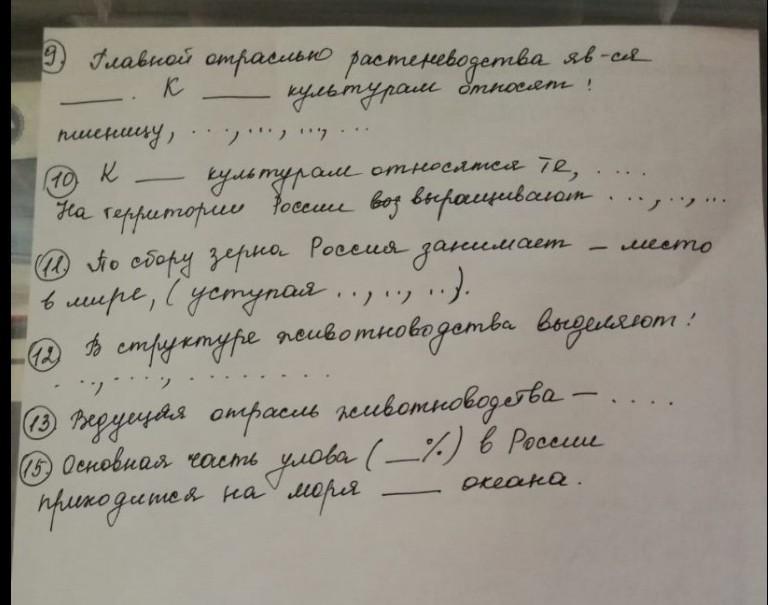 9. Главной отраслью растеневодства яв-ся
____. К ____ культурам относят:
пшеницу, ..., ..., ..., ...
10. К ___ культурам относятся те, ....
На территории России воз выращивают ..., .., ...
11. По сбору зерна Россия занимает _ место
в мире, (уступая .., .., ..).
12. В структуре животноводства выделяют:
...., ...., ........
13. Ведущая отрасль животноводства – ....
15. Основная часть улова (__%) в России
приходится на моря ___ океана.